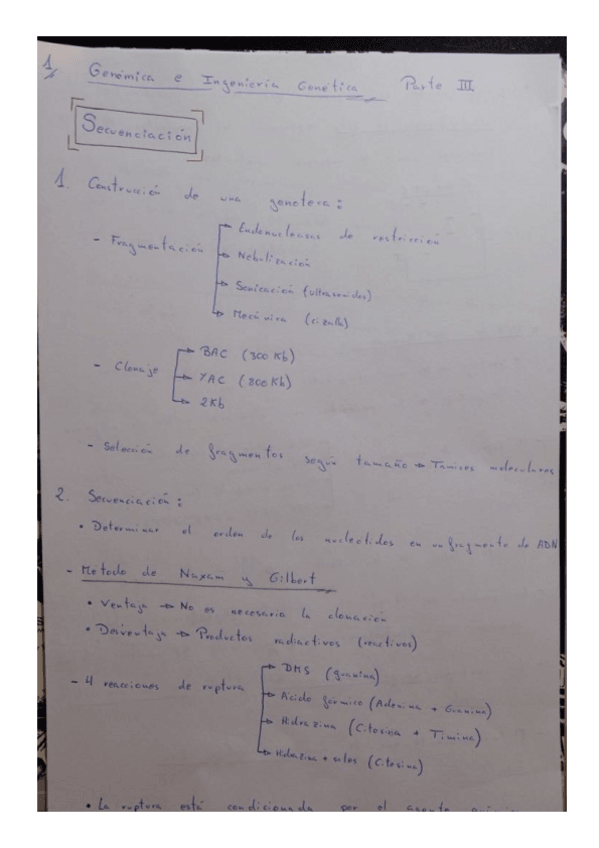 1/
Genómica e Ingeniería Genética Parte III
Secuenciación
1. Construcción de una genoteca:
- Fragmentación
Endonucleasas de restricción
Nebulización
Sonicación (ultrasonidos)
Mecánica (cizalla)
- Clonaje
BAC (300 Kb)
YAC (800 Kb)
2Kb
- Selección de fragmentos según tamaño → Tamices moleculares
2. Secuenciación:
• Determinar el orden de los nucleótidos en un fragmento de ADN
- Metodo de Maxam y Gilbert
• Ventaja → No es necesaria la clonación
• Desventaja → Productos radiactivos (reactivos)
- 4 reacciones de ruptura
DMS (guanina)
Ácido fórmico (Adenina + Guanina)
Hidrazina (Citosina + Timina)
Hidrazina + sales (Citosina)
• La ruptura está condicionada por el agente